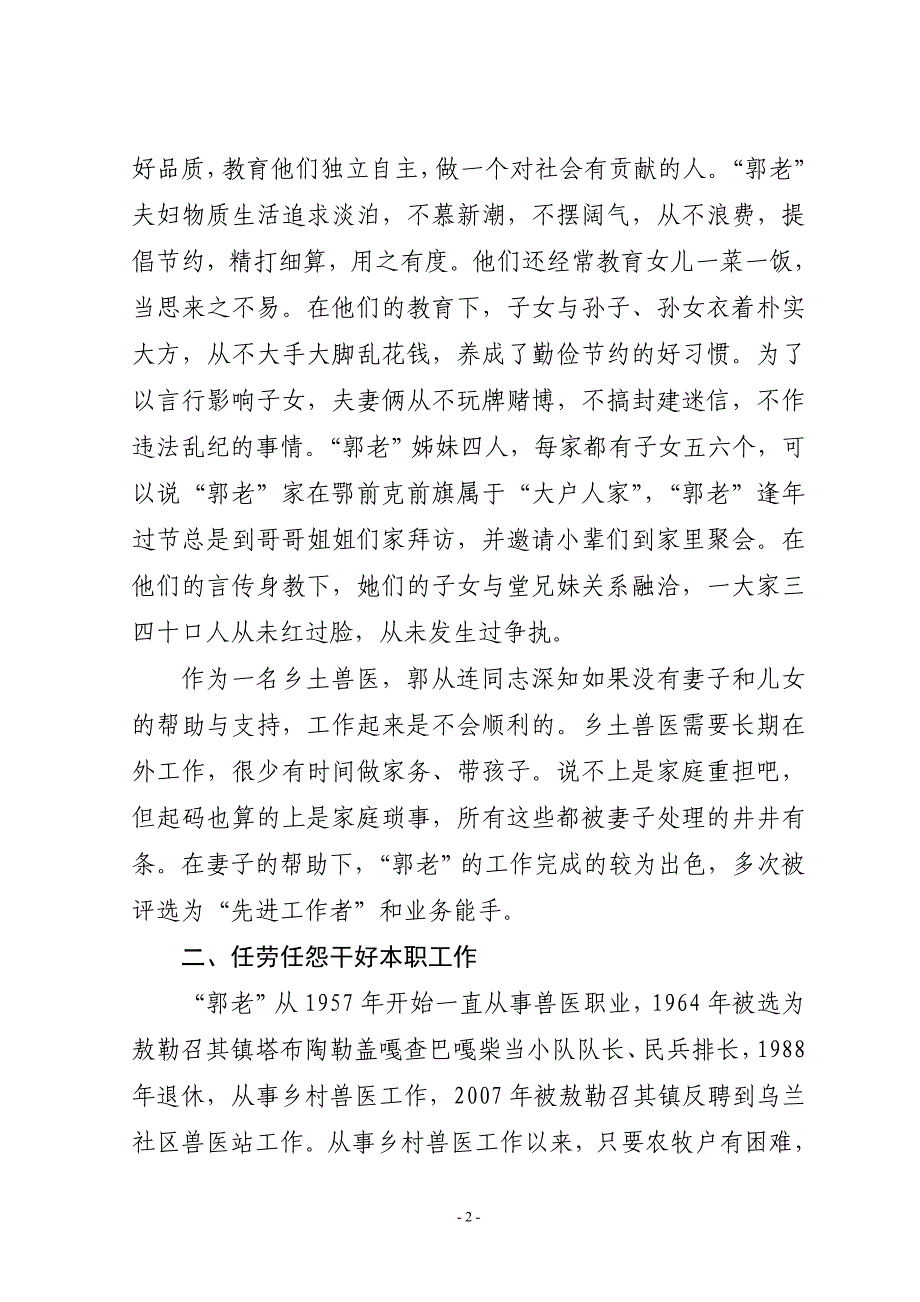 好品质，教育他们独立自主，做一个对社会有贡献的人。“郭老”
夫妇物质生活追求淡泊，不慕新潮，不摆阔气，从不浪费，提
倡节约，精打细算，用之有度。他们还经常教育女儿一菜一饭，
当思来之不易。在他们的教育下，子女与孙子、孙女衣着朴实
大方，从不大手大脚乱花钱，养成了勤俭节约的好习惯。为了
以言行影响子女，夫妻俩从不玩牌赌博，不搞封建迷信，不作
违法乱纪的事情。“郭老”姊妹四人，每家都有子女五六个，可
以说“郭老”家在鄂前克前旗属于“大户人家”，“郭老”逢年
过节总是到哥哥姐姐们家拜访，并邀请小辈们到家里聚会。在
他们的言传身教下，她们的子女与堂兄妹关系融洽，一大家三
四十口人从未红过脸，从未发生过争执。
作为一名乡土兽医，郭从连同志深知如果没有妻子和儿女
的帮助与支持，工作起来是不会顺利的。乡土兽医需要长期在
外工作，很少有时间做家务、带孩子。说不上是家庭重担吧，
但起码也算的上是家庭琐事，所有这些都被妻子处理的井井有
条。在妻子的帮助下，“郭老”的工作完成的较为出色，多次被
评选为“先进工作者”和业务能手。
二、任劳任怨干好本职工作
“郭老”从 1957 年开始一直从事兽医职业，1964 年被选为
敖勒召其镇塔布陶勒盖嘎查巴嘎柴当小队队长、民兵排长，1988
年退休，从事乡村兽医工作，2007 年被敖勒召其镇反聘到乌兰
社区兽医站工作。从事乡村兽医工作以来，只要农牧户有困难，
- 2 -